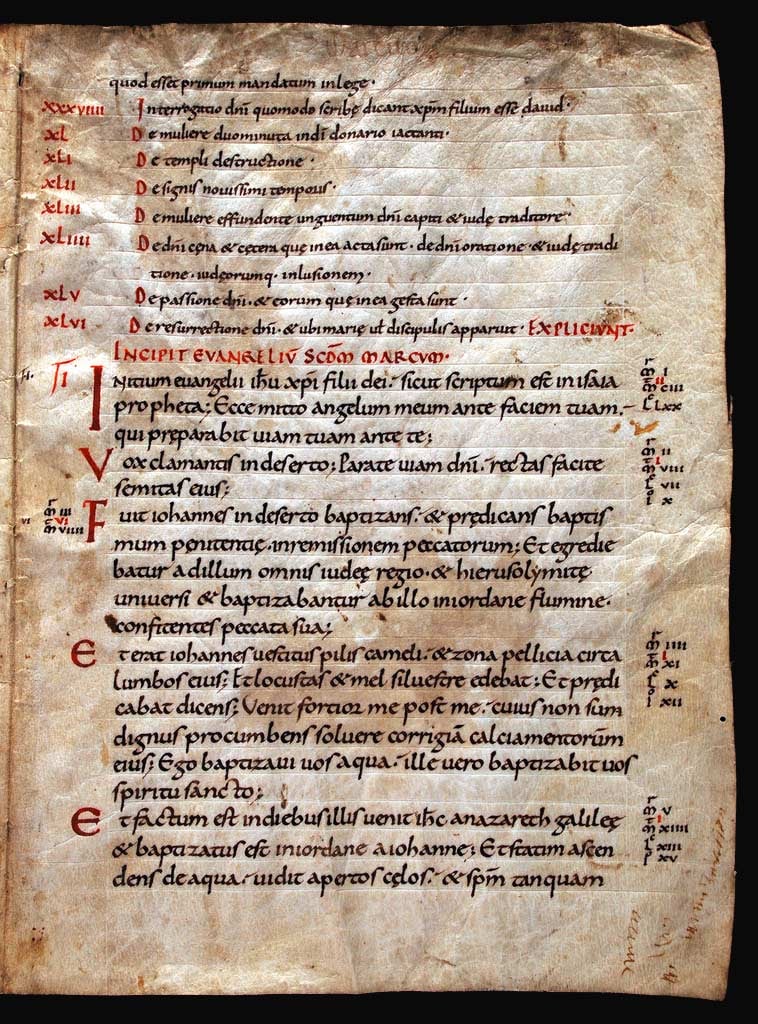 quod esset primum mandatum in lege·
xxxviiii Interrogatio dnī quomodo scribę dicant xp̄m filium esse dauid·
xL De muliere duo minuta in dnī donario iactanti·
xLi De templi destructione·
xLii De signis nouissimi temporis·
xLiii De muliere effundente unguentum dnī capiti & iudę traditore·
xLiiii De dnī cęna & cętera que in ea acta sunt· de dnī oratione· & iudę tradi
tione· iudęorumq· inlusionem·
xLv De passione dnī· & eorum quę in ea gesta sunt·
xLvi De resurrectione dnī· & ubi marię uł discipulis apparuit· EXPLICIVNT·
INCIPIT EVANGELIV̄ SCD̄M MARCVM·
INitium euangelii ih̄u xp̄i filii dei· sicut scriptum est in isaia
propheta; Ecce mitto angelum meum ante faciem tuam·
qui pręparabit uiam tuam ante te;
Vox clamantis in deserto; Parate uiam dnī· rectas facite
semitas eius;
Fuit iohannes in deserto baptizans· & prędicans baptis
mum penitentię· in remissionem peccatorum; Et egredie
batur ad illum omnis iudeę regio· & hierusolymitę
uniuersi & baptizabantur ab illo in iordane flumine·
confitentes peccata sua;
Et erat iohannes uestitus pilis cameli· & zona pellicia circa
lumbos eius; Et locustas & mel siluestre edebat; Et prędi
cabat dicens; Venit fortior me post me· cuius non sum
dignus procumbens soluere corrigiā calciamentorūm
eius; Ego baptizaui uos aqua· ille uero baptizabit uos
spiritu sancto;
Et factum est in diebus illis uenit ih̄c a nazareth galileę
& baptizatus est in iordane a iohanne; Et statim ascen
dens de aqua· uidit apertos cęlos· & sp̄m tanquam